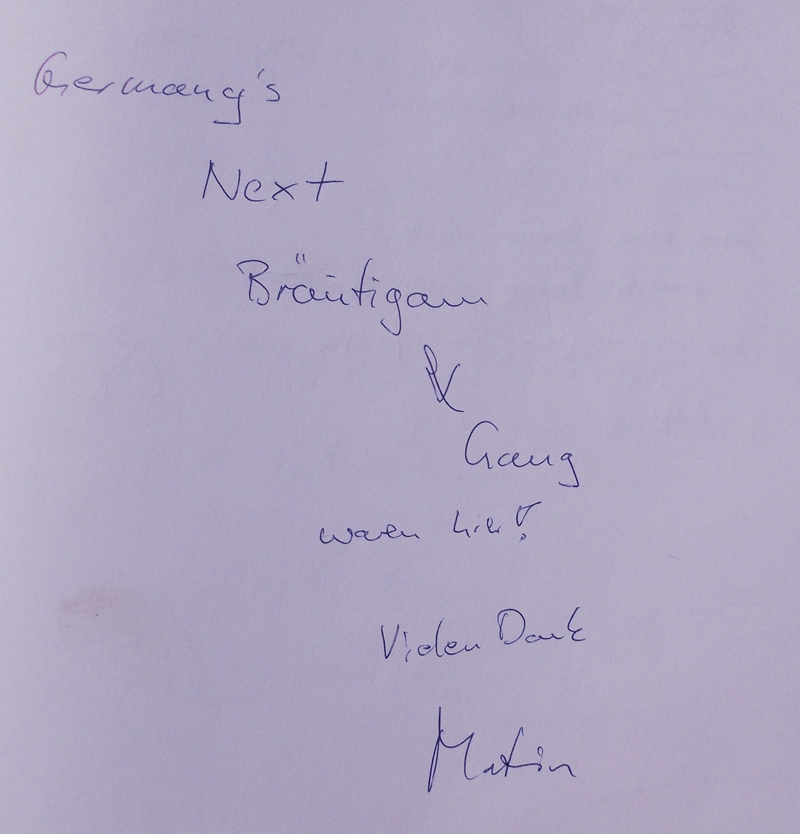 Germany's
Next
Bräutigam
&
Gang
waren hier!
Vielen Dank